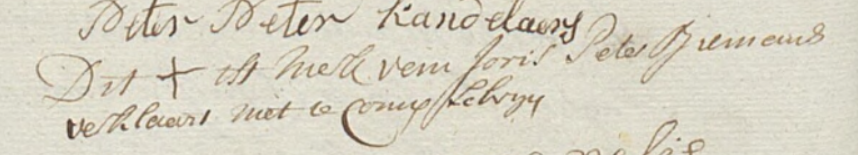 Peter Peter Kandelaers
Dit + ist Merk vem Joris Peter Bremans
verklaart niet te connen schryven